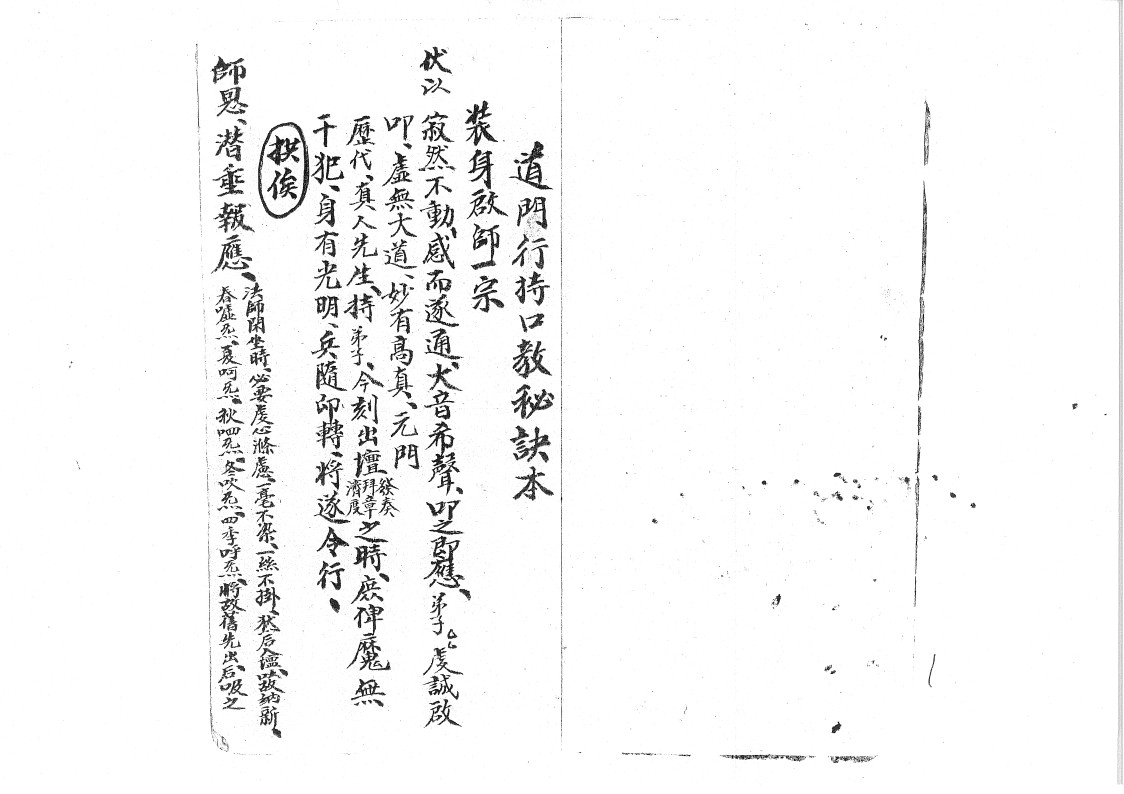 道門行持口教秘訣本
裝身啟師一宗
伏以 寂然不動、感而遂通、大音希聲、叩之即應、弟子厶厶虔誠啟
叩、虛無大道、妙有高真、元門
歷代、真人先生、持弟子、今刻出壇發奏拜章濟度之時、庶俾魔無
干犯、身有光明、兵隨印轉、將遂令行、
拱俟
師恩、潜垂報應、
法師閑坐時、必要虔心滌慮、一毫不染、一絲不掛、然后入壇、故納新、
春噓炁、夏呵炁、秋呬炁、冬吹炁、四季呼炁、將故舊先出、后吸之